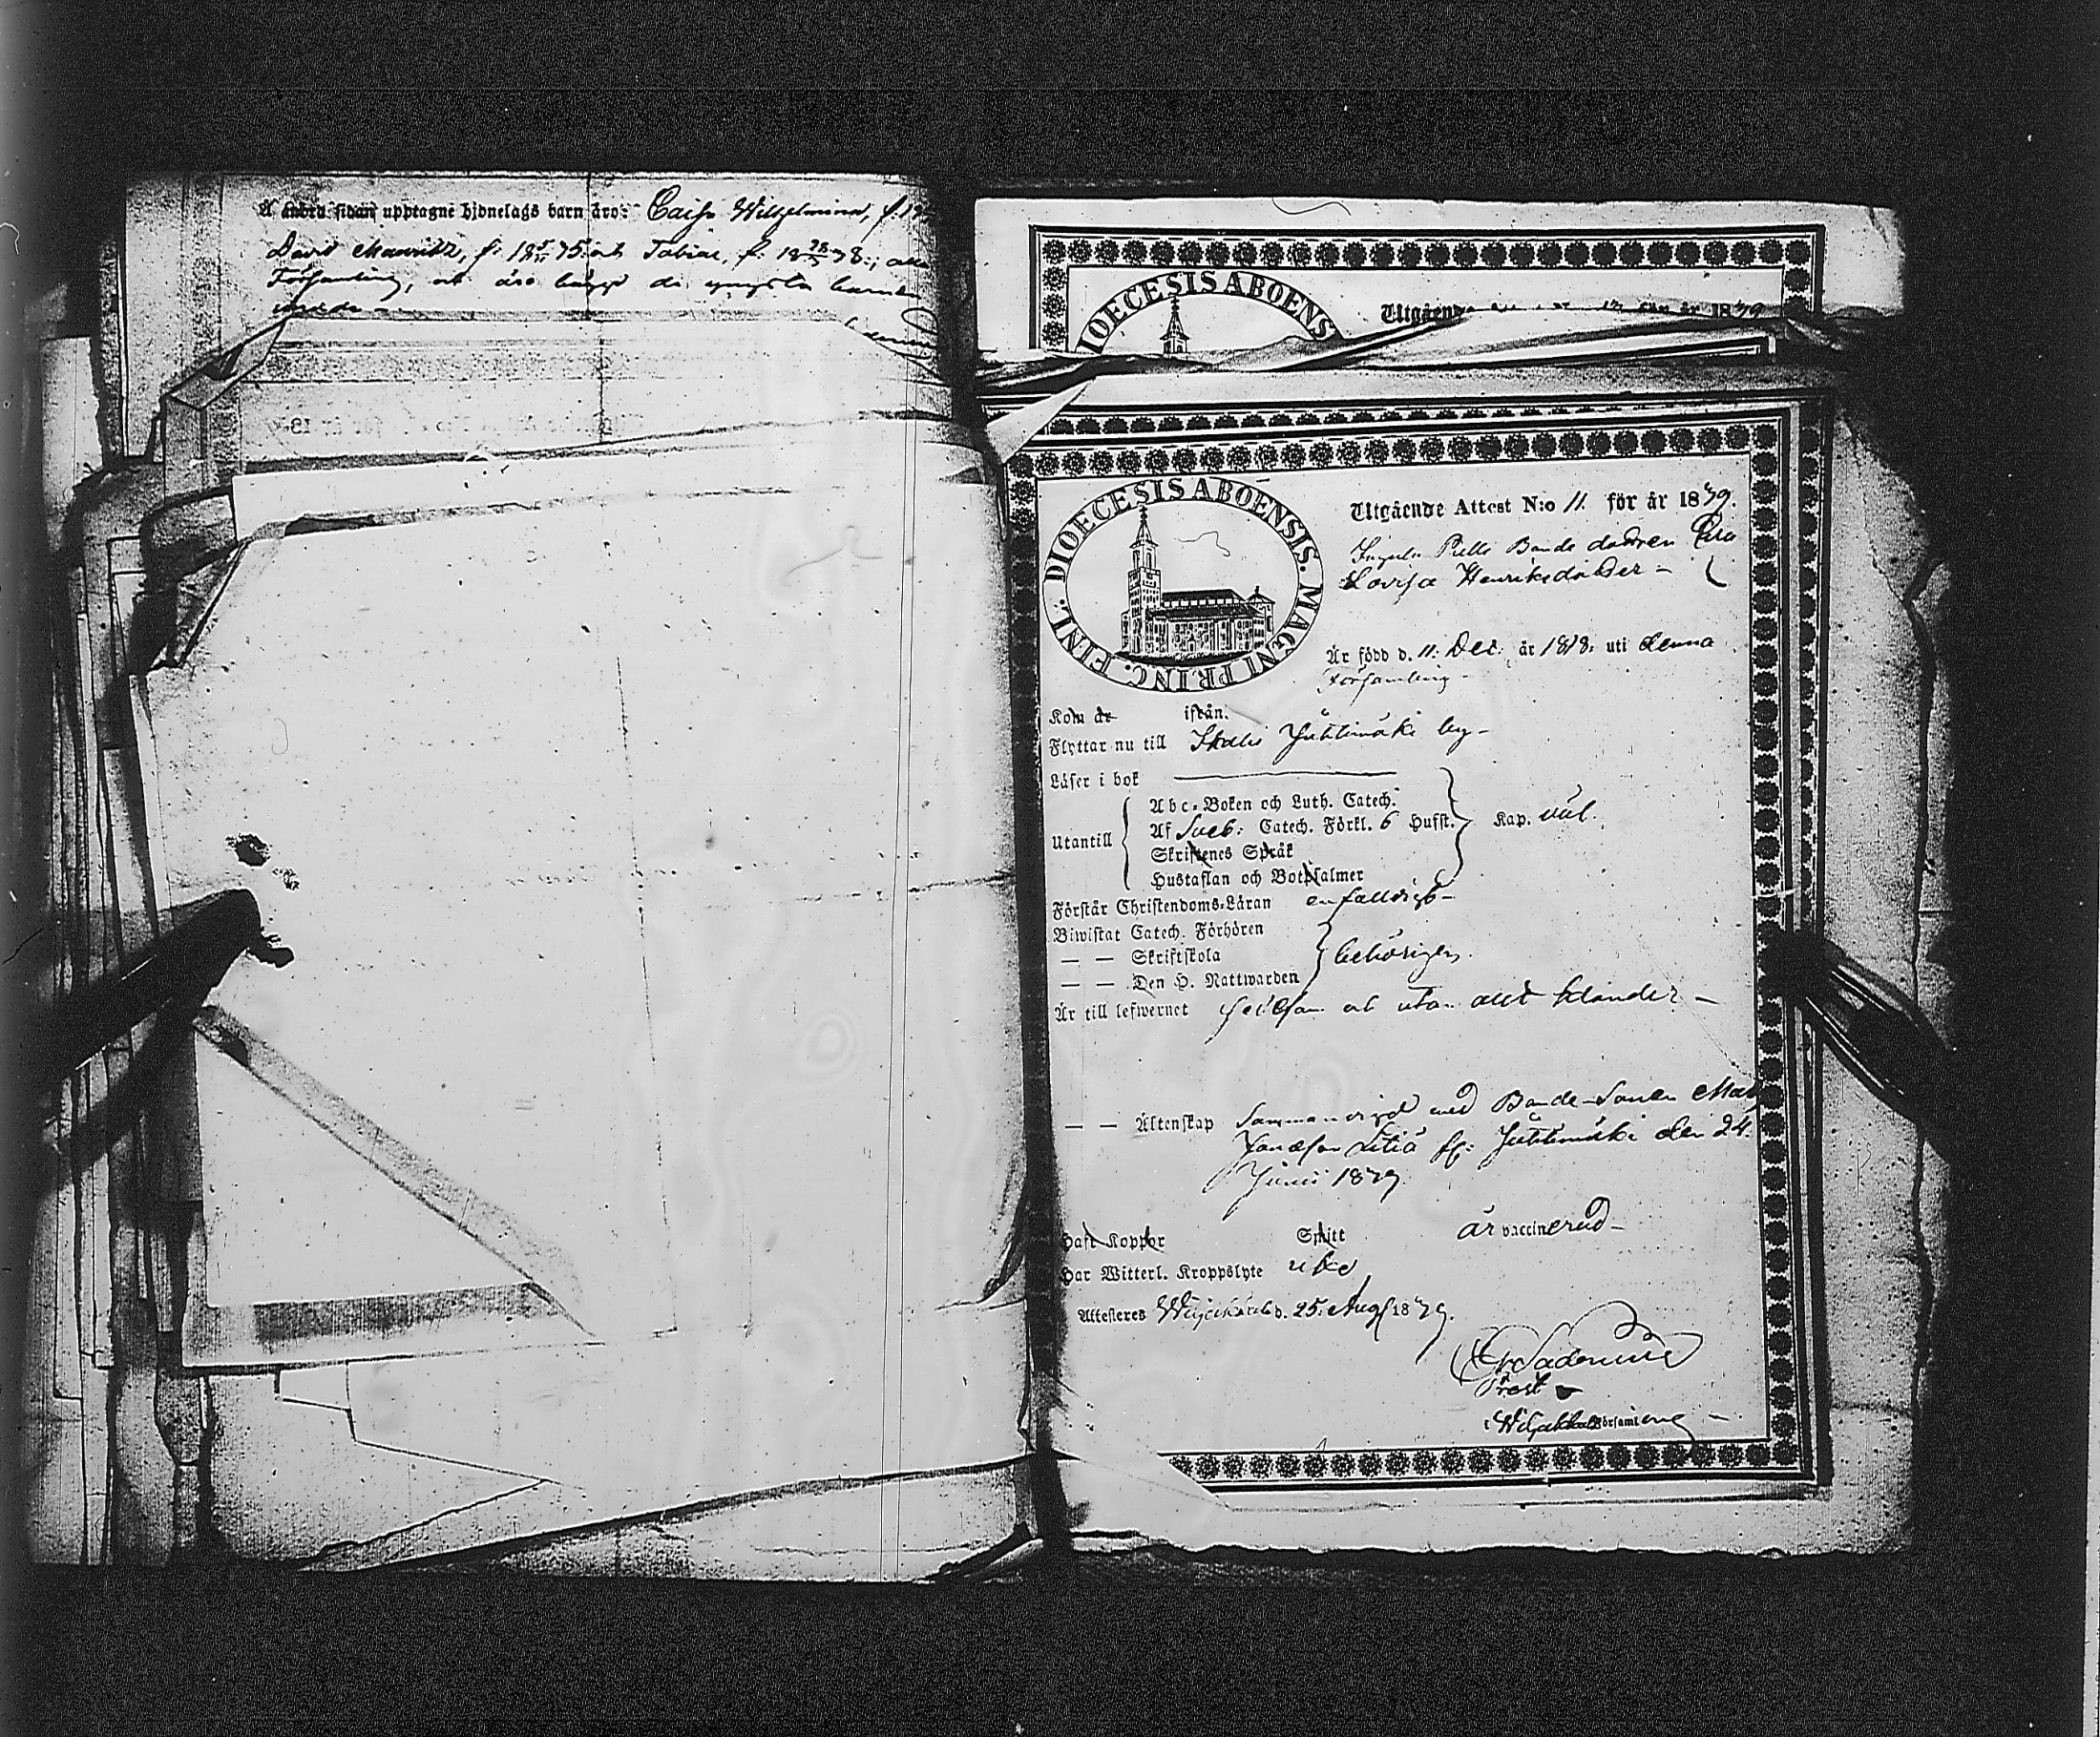 Å andra sidan upptagne hjonelags barn äro: Caisa Wilhelmina, f.
David Mauritz, f: 18 75: och Tobias, f: 18 28/5 78:; alla
Församling, och äro bägge de yngsta barnen
DIOECESIS ABOENS
Utgående 1879
DIOECESIS ABOENSIS. MAGNI PRINC. FINL.
Utgående Attest N:o 11. för år 1879.
Pelle Bonde dottren
Lovisa Henriksdotter –
Är född d. 11. Dec. år 18 8: uti denna
Församling –
Kom år ifrån.
Flyttar nu till Ikalis Juhtimäki by –
Läser i bok
Utantill
Abc-Boken och Luth. Catech.
Af Sveb: Catech. Förkl. 6 Hufst. Kap. väl.
Skriftenes Språk
Hustaflan och Botpsalmer
Förstår Christendoms-Läran enfaldigt –
Biwistat Catech. Förhören
— — Skriftskola behörigen.
— — Den H. Nattwarden
Är till lefwernet och utan allt klander –
— — Äktenskap Sammanvigd med Bonde-Sonen
Juhtimäki den 24.
Junii 1879.
Haft Koppor Smitt är vaccinerad –
Har Witterl. Kroppslyte icke
Attesteras d. 25. Aug. 1879.
Prost
i församling –